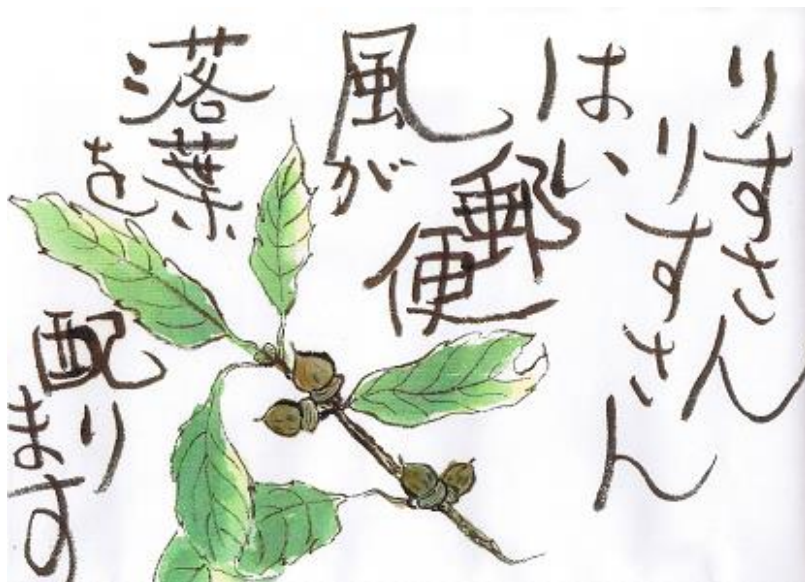 りすさん
りすさん
はい
郵便
風が
落葉
を
配り
ます